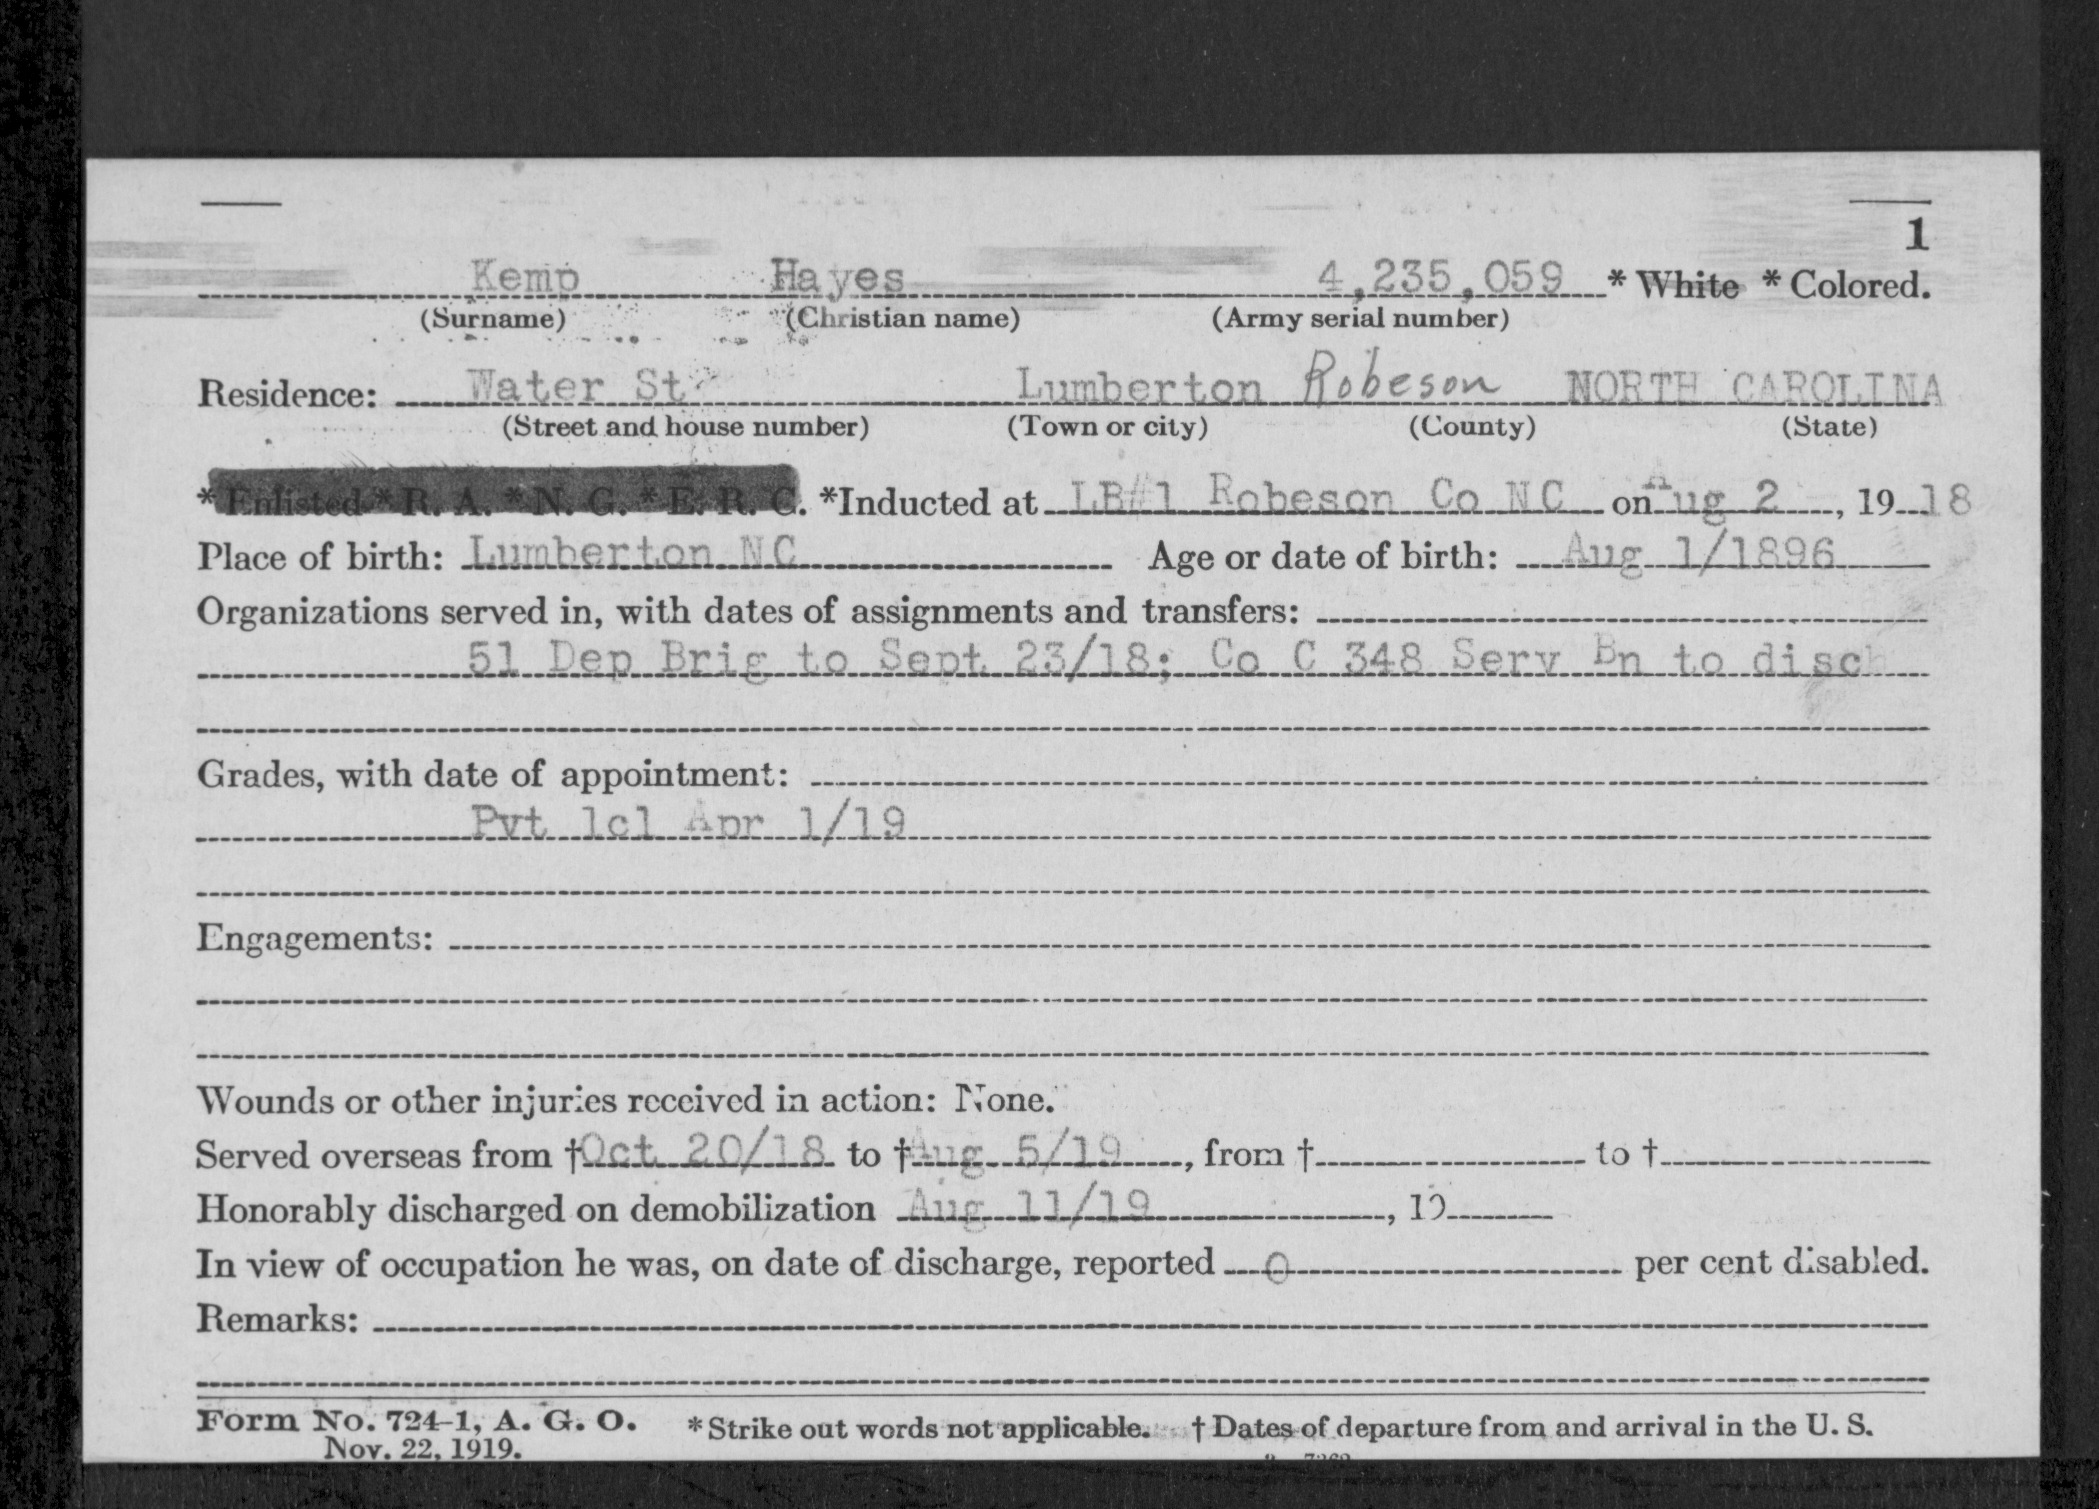 1
Kemp Hayes 4,235,059 * White * Colored.
(Surname) (Christian name) (Army serial number)
Residence: Water St Lumberton Robeson NORTH CAROLINA
(Street and house number) (Town or city) (County) (State)
* Enlisted * R. A. * N. G. * E. R. C. *Inducted at LB#1 Robeson Co N C on Aug 2, 19 18
Place of birth: Lumberton N C Age or date of birth: Aug 1/1896
Organizations served in, with dates of assignments and transfers:
51 Dep Brig to Sept 23/18; Co C 348 Serv Bn to disch
Grades, with date of appointment:
Pvt 1cl Apr 1/19
Engagements:
Wounds or other injuries received in action: None.
Served overseas from † Oct 20/18 to † Aug 5/19, from † to †
Honorably discharged on demobilization Aug 11/19, 19
In view of occupation he was, on date of discharge, reported 0 per cent disabled.
Remarks:
Form No. 724-1, A. G. O. * Strike out words not applicable. † Dates of departure from and arrival in the U. S.
Nov. 22, 1919.